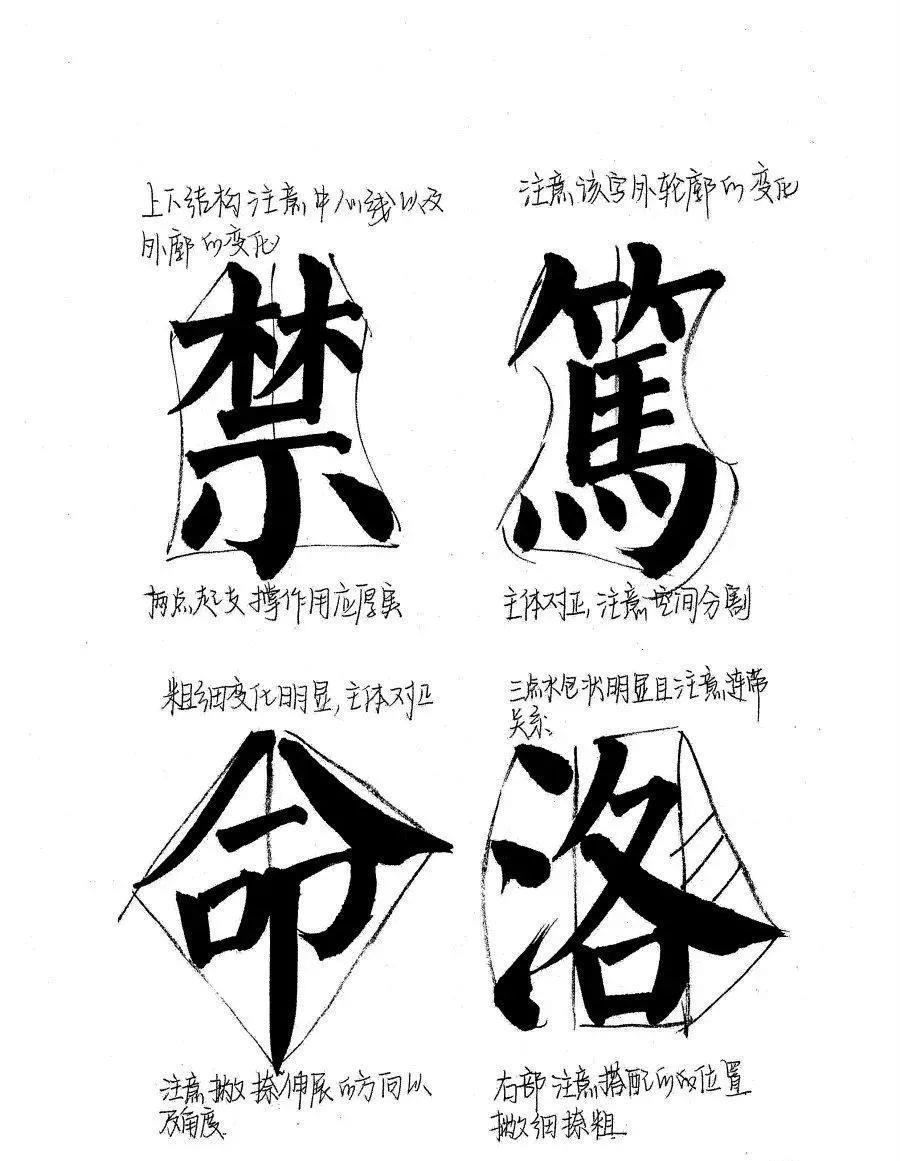 上下结构注意中心线以及
外廓的变化
禁
两点起支撑作用应厚实
注意该字外轮廓的变化
篤
主体对正，注意空间分割
粗细变化明显，主体对正
命
注意撇捺伸展的方向以
及角度
三点水包状明显且注意连带
关系
洛
右部注意搭配的的位置
撇细捺粗